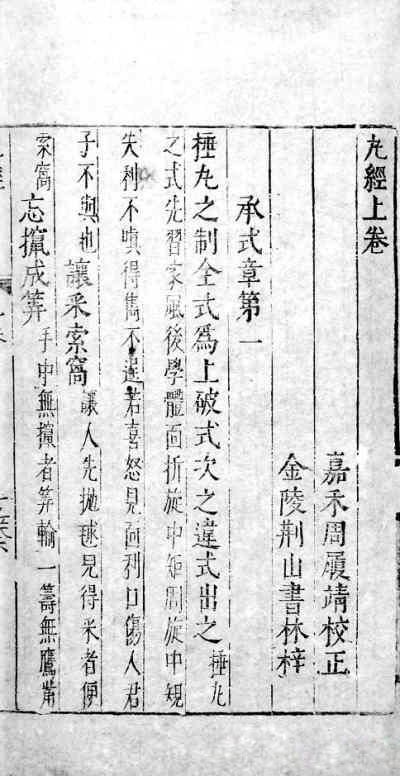 丸經上卷
嘉禾周履靖校正
金陵荆山書林梓
承式章第一
捶丸之制全式爲上破式次之違式出之捶丸
之式先習家風後學體面折旋中矩周旋中規
失利不嗔得雋不逞若喜怒見面利口傷人君
子不與也讓采索窩讓人先抛毬見得采者便
索窩忘攛成筭手中無攛者筭輸一籌無鷹觜